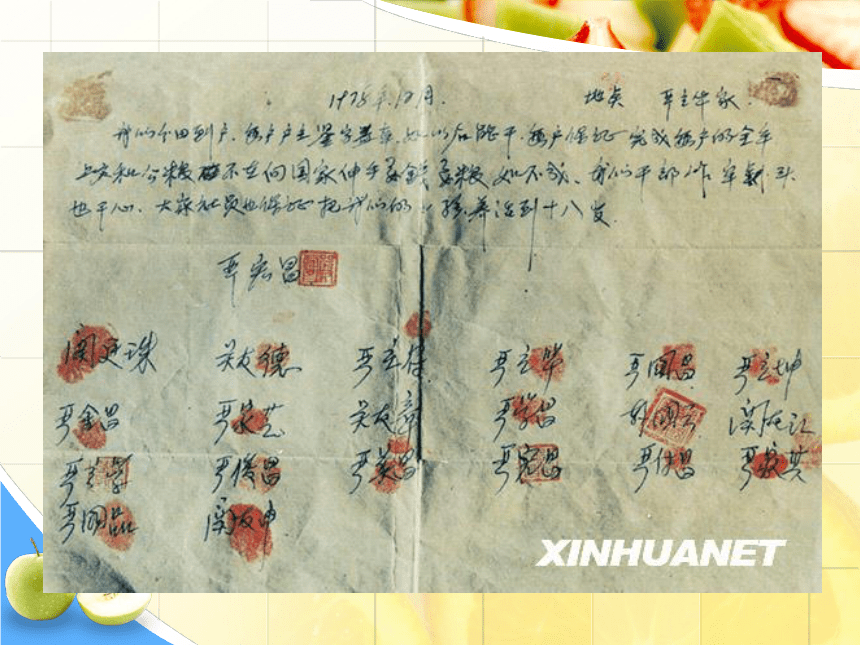 1978年12月. 地点 严立华家.
我们分田到户.每户户主签字盖章.如以后能干.每户保证完成每户的全年
上交和公粮 不在向国家伸手要钱要粮 如不成、我们干部作牢刹头
也干心、大家社员也保证把我们的小孩养活到十八岁.
严宏昌
关廷珠 关友德 严立符 严立华 严国昌 严立坤
严金昌 严家芝 关友章 严学昌 韩国云 关友江
严立学 严俊昌 严美昌 严宏昌 严付昌 严家其
严国品 关友申
XINHUANET